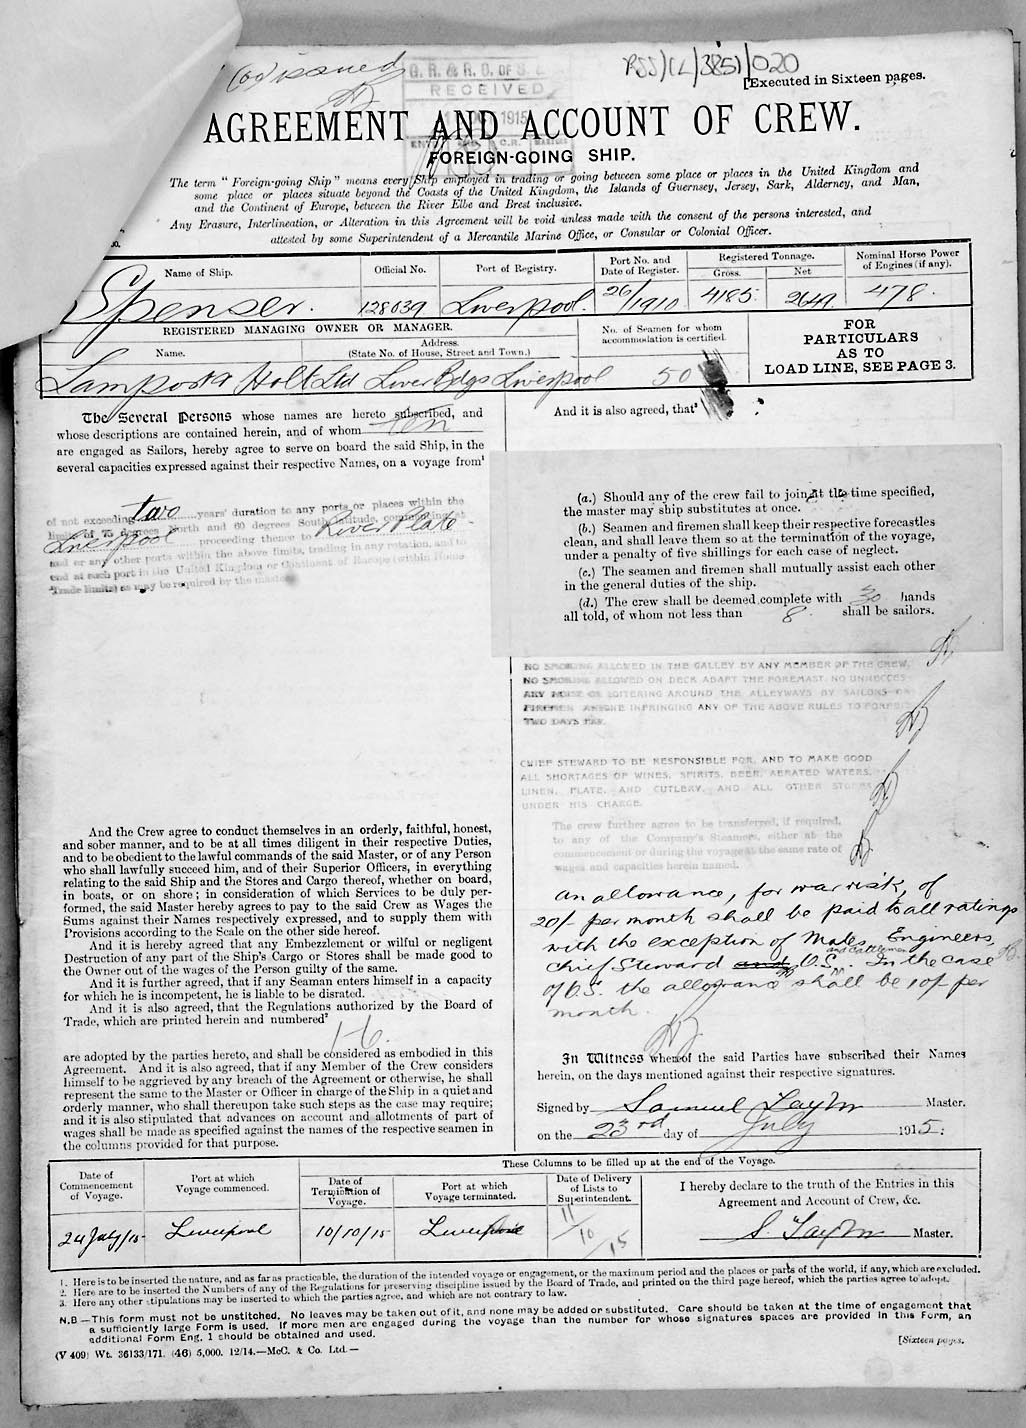 (a) issued
G. R. & R. O. OF S.
RECEIVED
1915
RSS/CL/3851/020
[Executed in Sixteen pages.
AGREEMENT AND ACCOUNT OF CREW.
FOREIGN-GOING SHIP.
The term "Foreign-going Ship" means every Ship employed in trading or going between some place or places in the United Kingdom and
some place or places situate beyond the Coasts of the United Kingdom, the Islands of Guernsey, Jersey, Sark, Alderney, and Man,
and the Continent of Europe, between the River Elbe and Brest inclusive.
Any Erasure, Interlineation, or Alteration in this Agreement will be void unless made with the consent of the persons interested, and
attested by some Superintendent of a Mercantile Marine Office, or Consular or Colonial Officer.
Name of Ship.
Official No.
Port of Registry.
Port No. and
Date of Register.
Registered Tonnage.
Gross.
Net
Nominal Horse Power
of Engines (if any).
Spenser.
128039
Liverpool.
26/1910
4185
2649
478.
REGISTERED MANAGING OWNER OR MANAGER.
Name.
Address.
(State No. of House, Street and Town.)
No. of Seamen for whom
accommodation is certified.
FOR
PARTICULARS
AS TO
LOAD LINE, SEE PAGE 3.
Lamport & Holt Ltd Liver Bdgs Liverpool
50
The Several Persons whose names are hereto subscribed, and
whose descriptions are contained herein, and of whom ten
are engaged as Sailors, hereby agree to serve on board the said Ship, in the
several capacities expressed against their respective Names, on a voyage from¹
of not exceeding two years' duration to any ports or places within the
limits of 75 degrees North and 60 degrees South latitude, commencing at
Liverpool proceeding thence to River Plate
and or any other ports within the above limits, trading in any rotation, and to
end at such port in the United Kingdom or Continent of Europe (within Home
Trade limits) as may be required by the master
And the Crew agree to conduct themselves in an orderly, faithful, honest,
and sober manner, and to be at all times diligent in their respective Duties,
and to be obedient to the lawful commands of the said Master, or of any Person
who shall lawfully succeed him, and of their Superior Officers, in everything
relating to the said Ship and the Stores and Cargo thereof, whether on board,
in boats, or on shore; in consideration of which Services to be duly per-
formed, the said Master hereby agrees to pay to the said Crew as Wages the
Sums against their Names respectively expressed, and to supply them with
Provisions according to the Scale on the other side hereof.
And it is hereby agreed that any Embezzlement or wilful or negligent
Destruction of any part of the Ship's Cargo or Stores shall be made good to
the Owner out of the wages of the Person guilty of the same.
And it is further agreed, that if any Seaman enters himself in a capacity
for which he is incompetent, he is liable to be disrated.
And it is also agreed, that the Regulations authorized by the Board of
Trade, which are printed herein and numbered²
are adopted by the parties hereto, and shall be considered as embodied in this
Agreement. And it is also agreed, that if any Member of the Crew considers
himself to be aggrieved by any breach of the Agreement or otherwise, he shall
represent the same to the Master or Officer in charge of the Ship in a quiet and
orderly manner, who shall thereupon take such steps as the case may require;
and it is also stipulated that advances on account and allotments of part of
wages shall be made as specified against the names of the respective seamen in
the columns provided for that purpose.
And it is also agreed, that³
(a.) Should any of the crew fail to join at the time specified,
the master may ship substitutes at once.
(b.) Seamen and firemen shall keep their respective forecastles
clean, and shall leave them so at the termination of the voyage,
under a penalty of five shillings for each case of neglect.
(c.) The seamen and firemen shall mutually assist each other
in the general duties of the ship.
(d.) The crew shall be deemed complete with 30 hands
all told, of whom not less than 8. shall be sailors.
NO SMOKING ALLOWED IN THE GALLEY BY ANY MEMBER OF THE CREW,
NO SMOKING ALLOWED ON DECK ABAFT THE FOREMAST. NO UNNECESS-
ARY NOISE OR LOITERING AROUND THE ALLEYWAYS BY SAILORS OR
FIREMEN ANYONE INFRINGING ANY OF THE ABOVE RULES TO FORFEIT
TWO DAYS PAY.
CHIEF STEWARD TO BE RESPONSIBLE FOR, AND TO MAKE GOOD
ALL SHORTAGES OF WINES, SPIRITS, BEER, AERATED WATERS,
LINEN, PLATE, AND CUTLERY, AND ALL OTHER STORES
UNDER HIS CHARGE.
The crew further agree to be transferred, if required,
to any of the Company's Steamers, either at the
commencement or during the voyage at the same rate of
wages and capacities herein named.
An allowance, for war risk, of
20/- per month shall be paid to all ratings
with the exception of Mates, Engineers,
Chief Steward and O.S. and Cattlemen. In the case
of O.S. the allowance shall be 10/- per
month.
In Witness whereof the said Parties have subscribed their Names
herein, on the days mentioned against their respective signatures.
Signed by Samuel Taylor Master.
on the 23rd day of July 1915.
These Columns to be filled up at the end of the Voyage.
Date of
Commencement
of Voyage.
Port at which
Voyage commenced.
Date of
Termination of
Voyage.
Port at which
Voyage terminated.
Date of Delivery
of Lists to
Superintendent.
I hereby declare to the truth of the Entries in this
Agreement and Account of Crew, &c.
24 July/15
Liverpool
10/10/15
Liverpool
11/10/15
S. Taylor Master.
1. Here is to be inserted the nature, and as far as practicable, the duration of the intended voyage or engagement, or the maximum period and the places or parts of the world, if any, which are excluded.
2. Here are to be inserted the Numbers of any of the Regulations for preserving discipline issued by the Board of Trade, and printed on the third page hereof, which the parties agree to adopt.
3. Here any other stipulations may be inserted to which the parties agree, and which are not contrary to law.
N.B —This form must not be unstitched. No leaves may be taken out of it, and none may be added or substituted. Care should be taken at the time of engagement that
a sufficiently large Form is used. If more men are engaged during the voyage than the number for whose signatures spaces are provided in this Form, an
additional Form Eng. 1 should be obtained and used.
(V 409) Wt. 36133/171. (46) 5,000. 12/14.—McC. & Co. Ltd.—
[Sixteen pages.